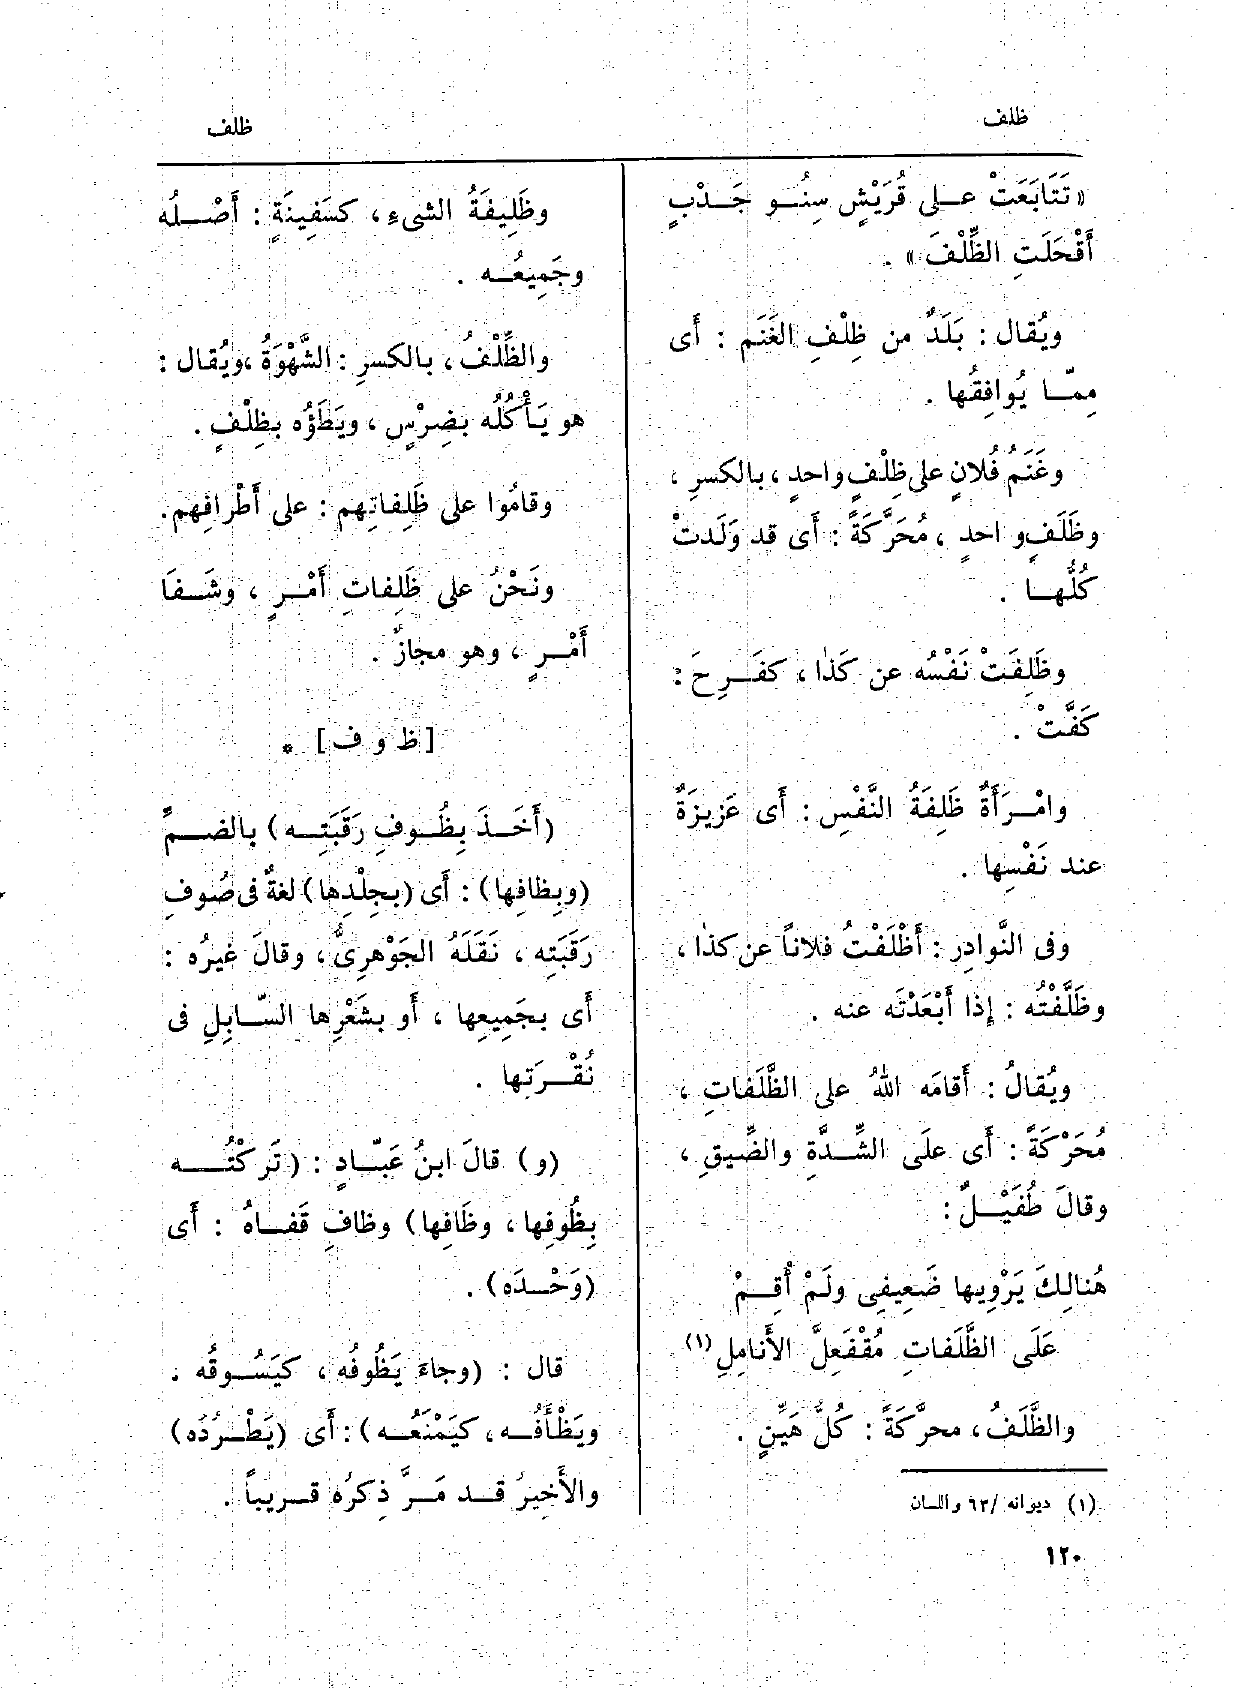 ظلف
ظلف
«تَتَابَعَتْ عــلى قُرَيْشٍ سِنُــو جَــدْبٍ
أَقْحَلَتِ الظِّلْفَ» .
ويُقال : بَلَدٌ من ظِلْفِ الغَنَمِ : أَى
مِمّــا يُوافِقُها .
وغَنَمُ فُلانٍ على ظِلْفٍ واحدٍ ، بالكسرِ ،
وظَلَفٍ واحدٍ ، مُحَرَّكَةً : أَى قد وَلَدتْ
كُلُّهــا .
وظَلِفَتْ نَفْسُه عن كَذٰا ، كفَــرِحَ :
كَفَّتْ .
وامْــرَأَةٌ ظَلِفَةُ النَّفْسِ : أَى عَزِيزَةٌ
عند نَفْسِها .
وفى النَّوادِر : أَظْلَفْتُ فلاناً عن كذٰا ،
وظَلَّفْتُه : إِذا أَبْعَدْتَه عنه .
ويُقالُ : أَقامَه اللهُ على الظَّلَفاتِ ،
مُحَرْكَةً : أَى علَى الشِّــدَّةِ والضِّيقِ ،
وقالَ طُفَيْــلٌ :
هُنالِكَ يَرْوِيها ضَعِيفِى ولَمْ أُقِــمْ
عَلَى الظَّلَفاتِ مُقْفَعِلَّ الأَنامِلِ (١)
والظَّلَفُ ، محرَّكَةً : كُلُّ هَيِّنٍ .
(١) ديوانه /٦٣ واللسان
١٢٠
وظَلِيفَةُ الشىءِ ، كسَفِينَةٍ : أَصْــلُه
وجَمِيعُــه .
والظِّلْفُ ، بالكسرِ : الشَّهْوَةُ ، ويُقال :
هو يَأْكُلُه بضِرْسٍ ، ويَطَؤُه بظِلْفٍ .
وقامُوا على ظَلِفاتِهم : على أَطْرافِهم .
ونَحْنُ على ظَلِفاتِ أَمْــرٍ ، وشَــفَا
أَمْــرٍ ، وهو مجازٌ .
[ظ و ف] *
(أَخَــذَ بِظُــوفِ رَقَبَتِــه) بالضــمِّ
(وبِظافِها) : أَى (بجِلْدِها) لغةٌ فى صُوفِ
رَقَبَتِه ، نَقَلَهُ الجَوْهرِىُّ ، وقالَ غيرُه :
أَى بجَمِيعِها ، أَو بشَعْرِها السّــابِلِ فى
نُقْــرَتِها .
(و) قالَ ابنُ عَبّــادٍ : (تَرَكْتُــه
بِظُوفِها ، وظَافِها) وظافِ قَفــاهُ : أَى
(وَحْــدَه) .
قال : (وجاءَ يَظُوفُه ، كيَسُــوقُه .
ويَظْأَفُــه ، كيَمْنَعُــه) : أَى (يَطْــرُدُه)
والأَخِيرُ قــد مَــرَّ ذِكرُه قــريباً .